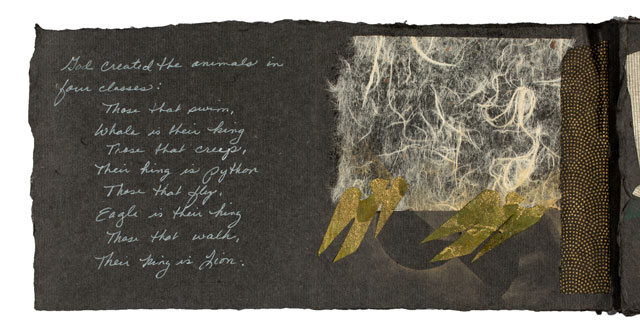 God created the animals in
four classes:
Those that swim,
Whale is their king
Those that creep,
Their king is python
Those that fly.
Eagle is their king
Those that walk,
Their king is Lion.